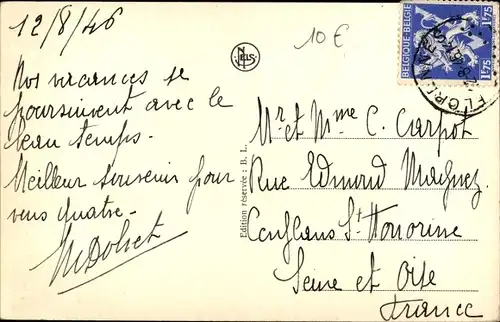 12/8/46
Nos vacances se
poursuivent avec le
beau temps.
Meilleur souvenir pour
vous quatre -
10 €
NELS
Edition réservée : B. L.
BELGIQUE-BELGIE
1F75
1F75
FLORENN
Mr et Mme C. Carpot
Rue Edmond Magnez
Conflans St Honorine
Seine et Oise
France